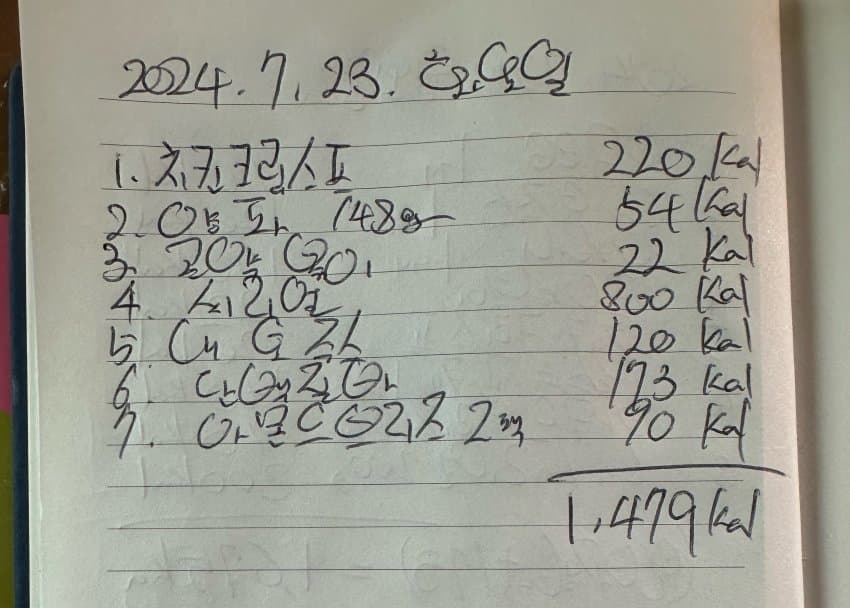 2024. 7. 23. 화요일
1. 치킨크림스프 220 Kal
2. 양파 148g 54 Kal
3. 220 22 Kal
4. 시리얼 800 Kal
5. 120 Kal
6. 단백질바 173 Kal
7. 아몬드브리즈 2팩 90 Kal
1,479 Kal